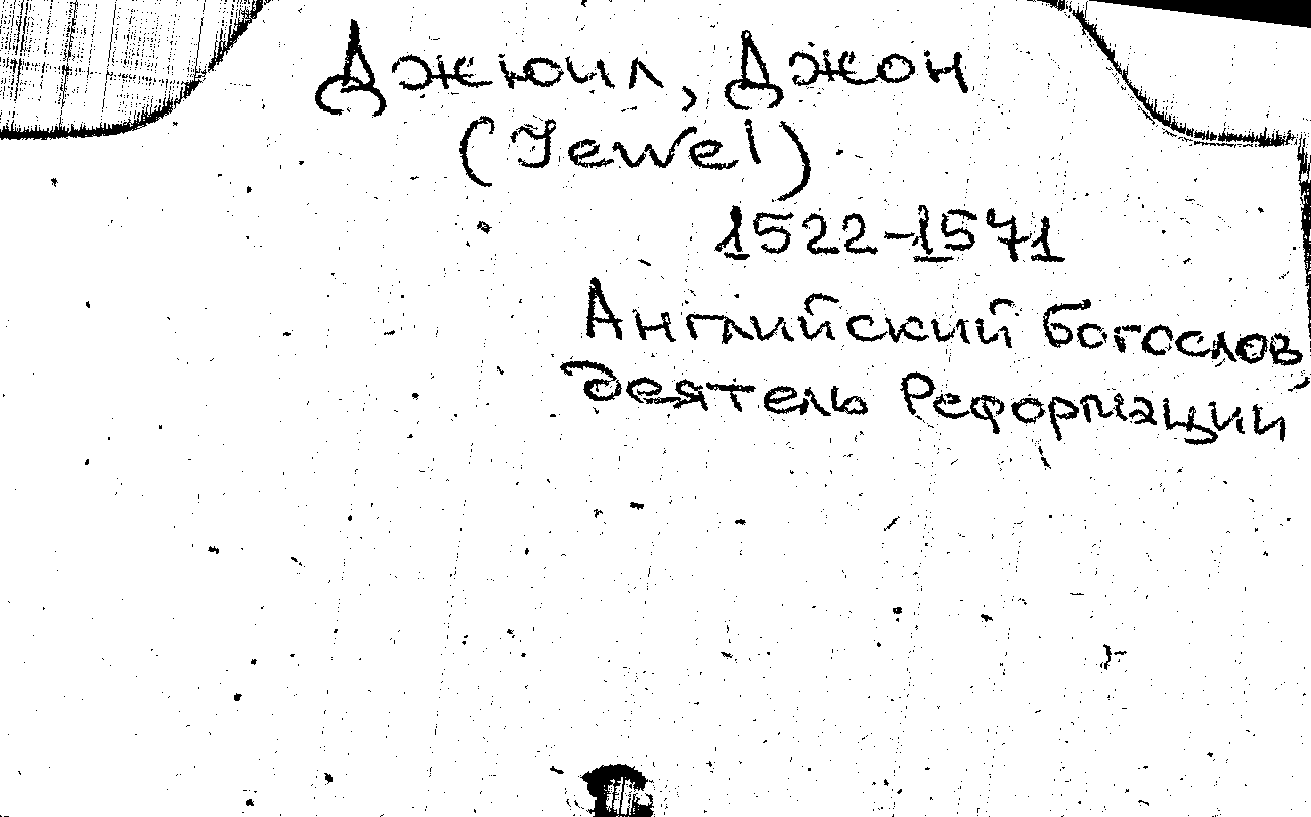 Джюил, Джон
(Jewel)
1522-1571
Английский богослов,
деятель Реформации